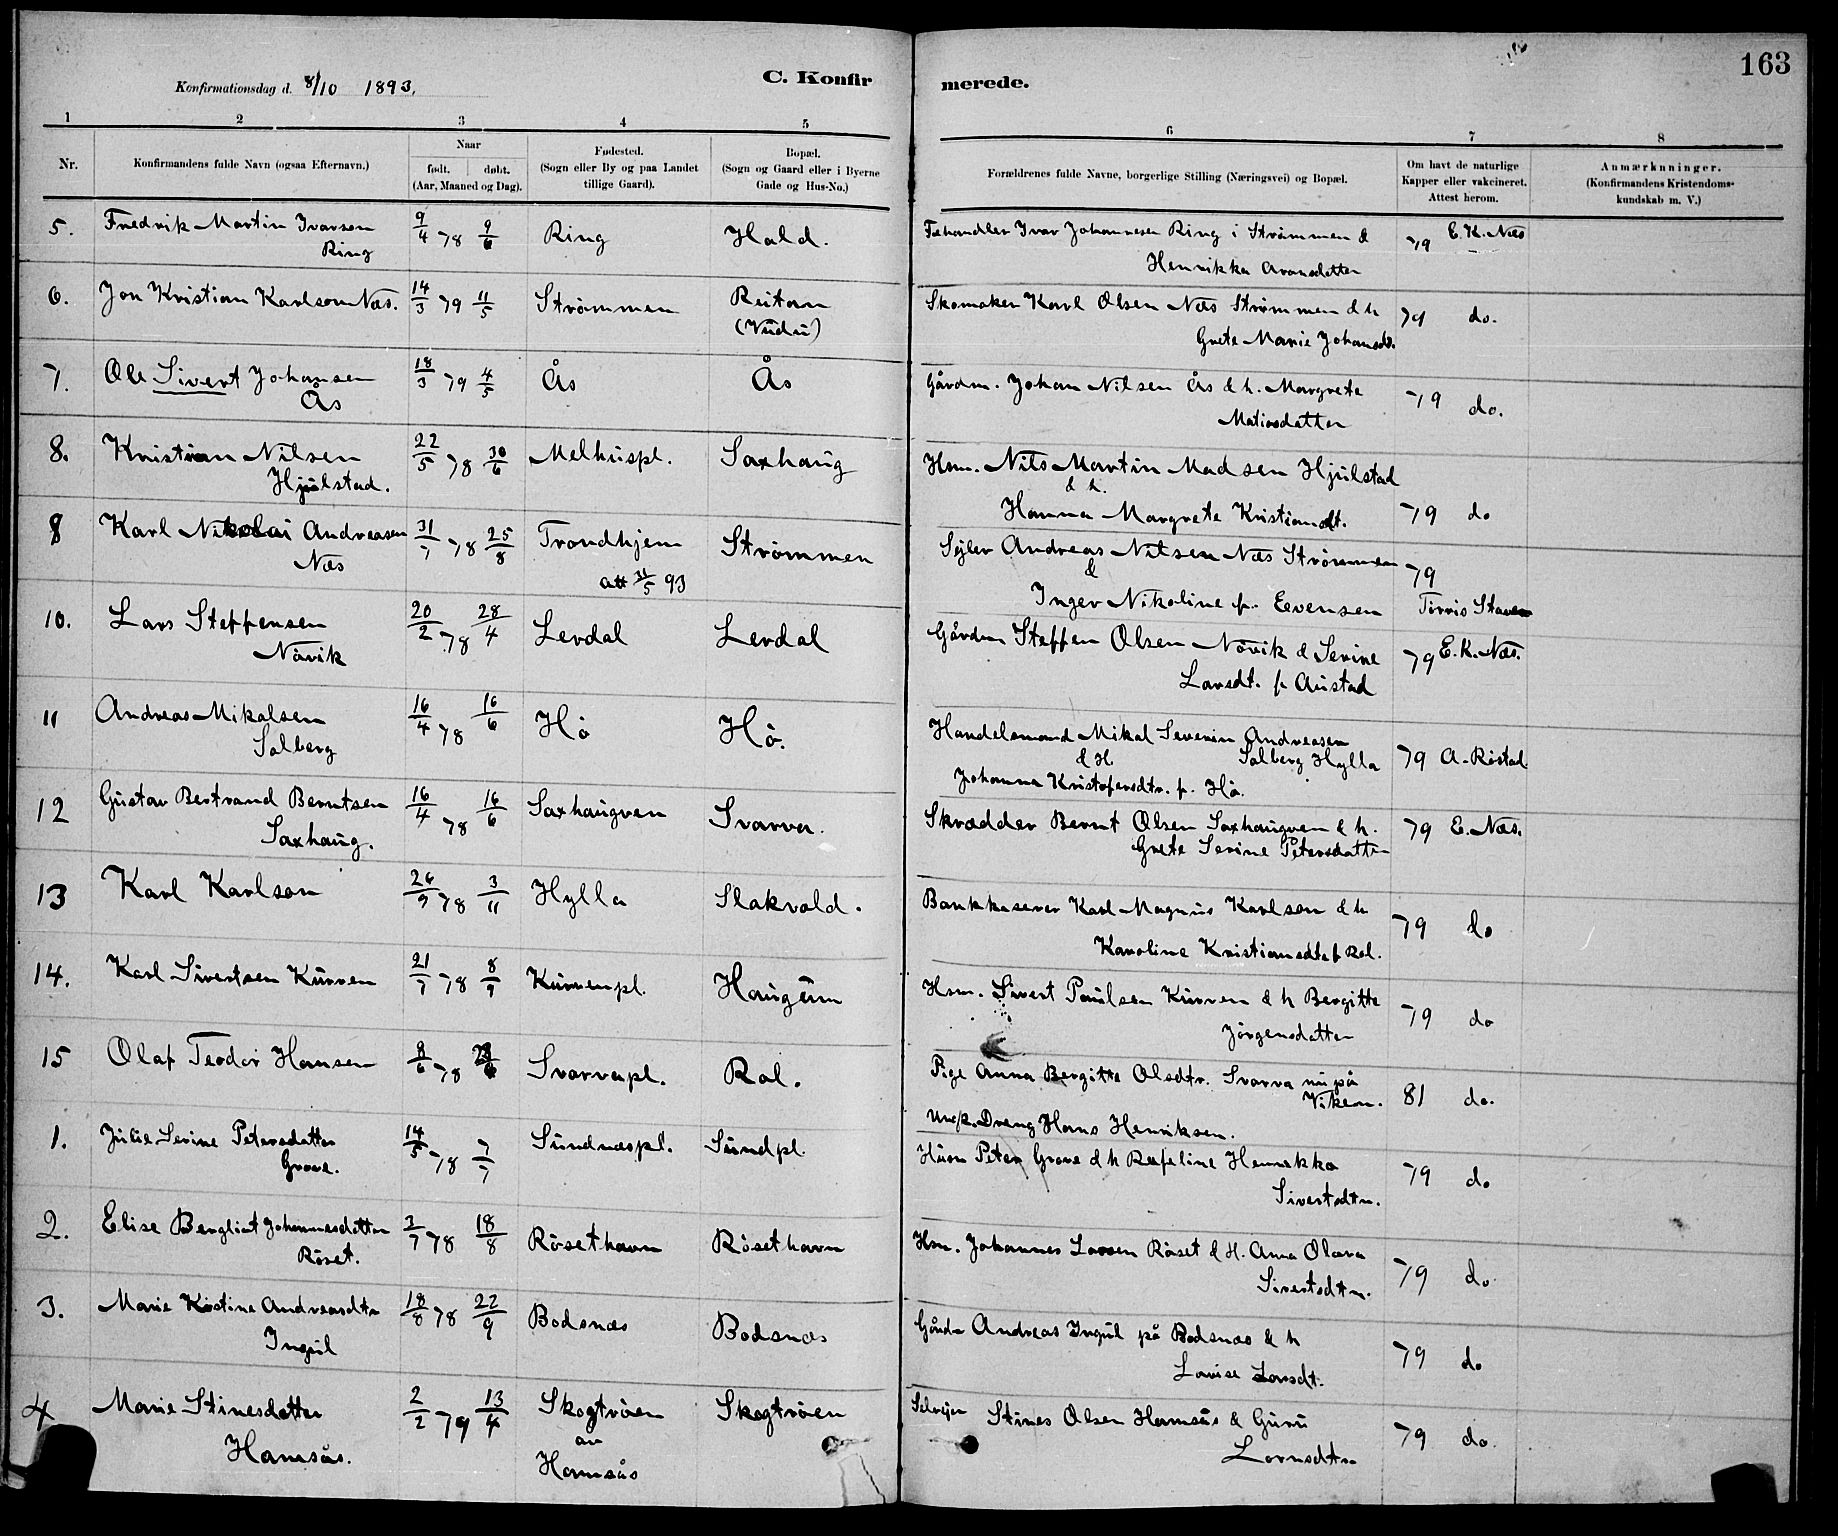 163
Konfirmationsdag d. 8/10 1893.
C. Konfirmerede.
1 2 3 4 5 6 7 8
Nr.
Konfirmandens fulde Navn (ogsaa Efternavn.)
Naar
født. døbt.
(Aar, Maaned og Dag).
Fødested.
(Sogn eller By og paa Landet
tillige Gaard).
Bopæl.
(Sogn og Gaard eller i Byerne
Gade og Hus-No.)
Forældrenes fulde Navne, borgerlige Stilling (Næringsvei) og Bopæl.
Om havt de naturlige
Kapper eller vakcineret.
Attest herom.
Anmærknninger.
(Konfirmandens Kristendoms-
kundskab m. V.)
5. Fredrik Martin Ivarsen 9/4 78 9/6 Ring Hald. Fæhandler Ivar Johannesen Ring i Strømmen & 79 E. K. Næs
Ring Henrikka Aronsdatter
6. Jon Kristian Karlson Næs. 14/3 79 11/5 Strømmen Reitan Skomaker Karl Olsen Næs Strømmen & h 79 do.
Grete Marie Johansdt.
7. Ole Sivert Johansen 18/3 79 4/5 Ås Ås Gårdm. Johan Nilsen Ås & h. Margrete 79 do.
Ås Matiasdatter
8. Kristian Nilsen 22/5 78 30/6 Melhuspl. Saxhaug Hsm. Nils Martin Madsen Hjulstad
Hjulstad. & h.
Hanna Margrete Kristiansdt. 79 do
8 Karl Nikolai Andreasen 31/7 78 25/8 Trondhjem Strømmen Sejler Andreas Nilsen Næs Strømmen 79
Næs att 31/5 93 &
Inger Nikoline f. Evensen
10. Lars Steffensen 20/2 78 28/4 Levdal Levdal Gårdm Steffen Olsen Nøvik & Serine 79 E. K. Næs.
Nøvik Larsdt. f. Austad
11 Andreas Mikalsen 16/4 78 16/6 Hø Hø. Handelsmand Mikal Severin Andreasen
Salberg & H. Salberg Hylla 79 A. Røstad
Johanna Kristofersdtr. f. Hø.
12 Gustav Bertrand Berntsen 16/4 78 16/6 Saxhaugven Svarva. Skrædder Bernt Olsen Saxhaugven & h. 79 E. Næs.
Saxhaug. Grete Serine Petersdatter
13 Karl Karlson 26/9 78 3/11 Hylla Slakvold. Bankkaserer Karl Magnus Karlsen & h 79 do
Karoline Kristiansdt f Rol.
14. Karl Sivertsen Kurven 21/7 78 8/9 Kurvenpl. Haugum Hsm. Sivert Paulsen Kurven & h Bergitte 79 do
Jørgensdatter
15 Olaf Teodor Hansen 8/6 78 Svarvapl. Rol. Pige Anna Bergitte Olsdtr. Svarva nu på
Viken. 81 do.
Ungk. Dreng Hans Henriksen.
1. Julie Serine Petersdatter 14/5 78 7/7 Sundnæspl. Sundpl. Husm Peter Grove & h Refeline Henrikka 79 do
Grove. Sivertsdtr.
2. Elise Bergliot Johannesdatter 3/7 78 18/8 Røsethavn Røsethavn Hsm. Johannes Larsen Røset & H. Anna Olava 79 do
Røset. Sivertsdtr.
3. Marie Kristine Andreasdtr 18/8 78 22/9 Bodsnæs Bodsnæs Gårdm Andreas Ingul på Bodsnæs & h 79 do
Ingul Louise Larsdt.
4 Marie Stinesdatter 2/2 79 13/4 Skogtrøen Skogtrøen Selvejer Stines Olsen Hamsås & Guru 79 do.
Hamsås. av Larsdtr
Hamsås